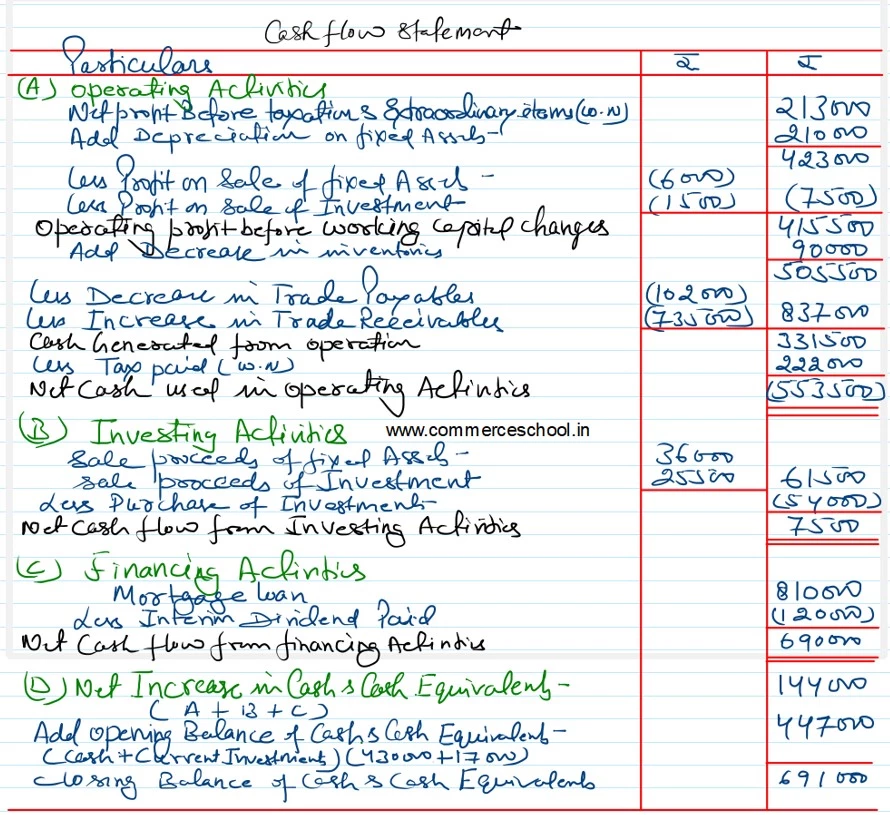 Cash flow Statement
Particulars ₹ ₹
(A) Operating Activities
Net profit Before taxation & Extraordinary items (W.N) 213000
Add Depreciation on fixed Assets- 210000
423000
Less Profit on Sale of fixed Assets - (6000)
Less Profit on Sale of Investment (1500) (7500)
Operating profit before working capital changes 415500
Add Decrease in inventories 90000
505500
Less Decrease in Trade Payables (102000)
Less Increase in Trade Receivables (735000) 837000
Cash Generated from operation 331500
Less Tax paid (W.N) 222000
Net Cash used in operating Activities (553500)
(B) Investing Activities www.commerceschool.in
Sale proceeds of fixed Assets- 36000
Sale proceeds of Investment 25500 61500
Less Purchase of Investment- (54000)
Net Cash flow from Investing Activities 7500
(C) Financing Activities
Mortgage loan 810000
Less Interim Dividend Paid (120000)
Net Cash flow from financing Activities 690000
(D) Net Increase in Cash & Cash Equivalents - 144000
(A + B + C)
Add opening Balance of Cash & Cash Equivalents- 447000
(Cash + Current Investment) (430000+17000)
Closing Balance of Cash & Cash Equivalents 691000